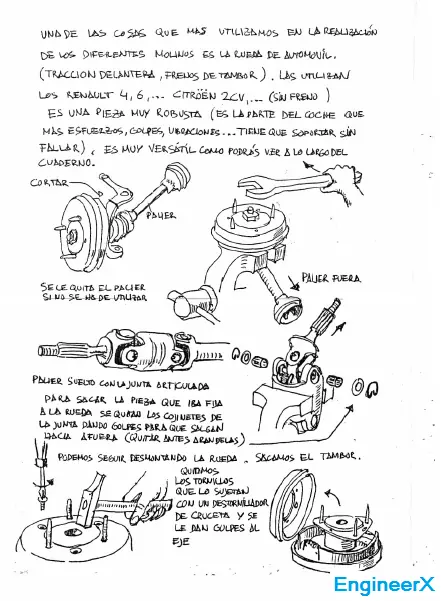 UNA DE LAS COSAS QUE MAS UTILIZAMOS EN LA REALIZACIÓN
DE LOS DIFERENTES MOLINOS ES LA RUEDA DE AUTOMOVIL.
(TRACCION DELANTERA, FRENOS DE TAMBOR). LAS UTILIZAN
LOS RENAULT 4, 6, ... CITRÖEN 2CV, ... (SIN FRENO)
ES UNA PIEZA MUY ROBUSTA (ES LA PARTE DEL COCHE QUE
MAS ESFUERZOS, GOLPES, VIBRACIONES... TIENE QUE SOPORTAR SIN
FALLAR). ES MUY VERSÁTIL COMO PODRÁS VER A LO LARGO DEL
CUADERNO.
CORTAR
PALIER
SE LE QUITA EL PALIER
SI NO SE HA DE UTILIZAR
PALIER FUERA
PALIER SUELTO CON LA JUNTA ARTICULADA
PARA SACAR LA PIEZA QUE IBA FIJA
A LA RUEDA SE QUITAN LOS COJINETES DE
LA JUNTA DANDO GOLPES PARA QUE SALGAN
HACIA AFUERA (QUITAR ANTES ARANDELAS)
PODEMOS SEGUIR DESMONTANDO LA RUEDA. SACAMOS EL TAMBOR.
QUITAMOS
LOS TORNILLOS
QUE LO SUJETAN
CON UN DESTORNILLADOR
DE CRUCETA Y SE
LE DAN GOLPES AL
EJE
EngineerX